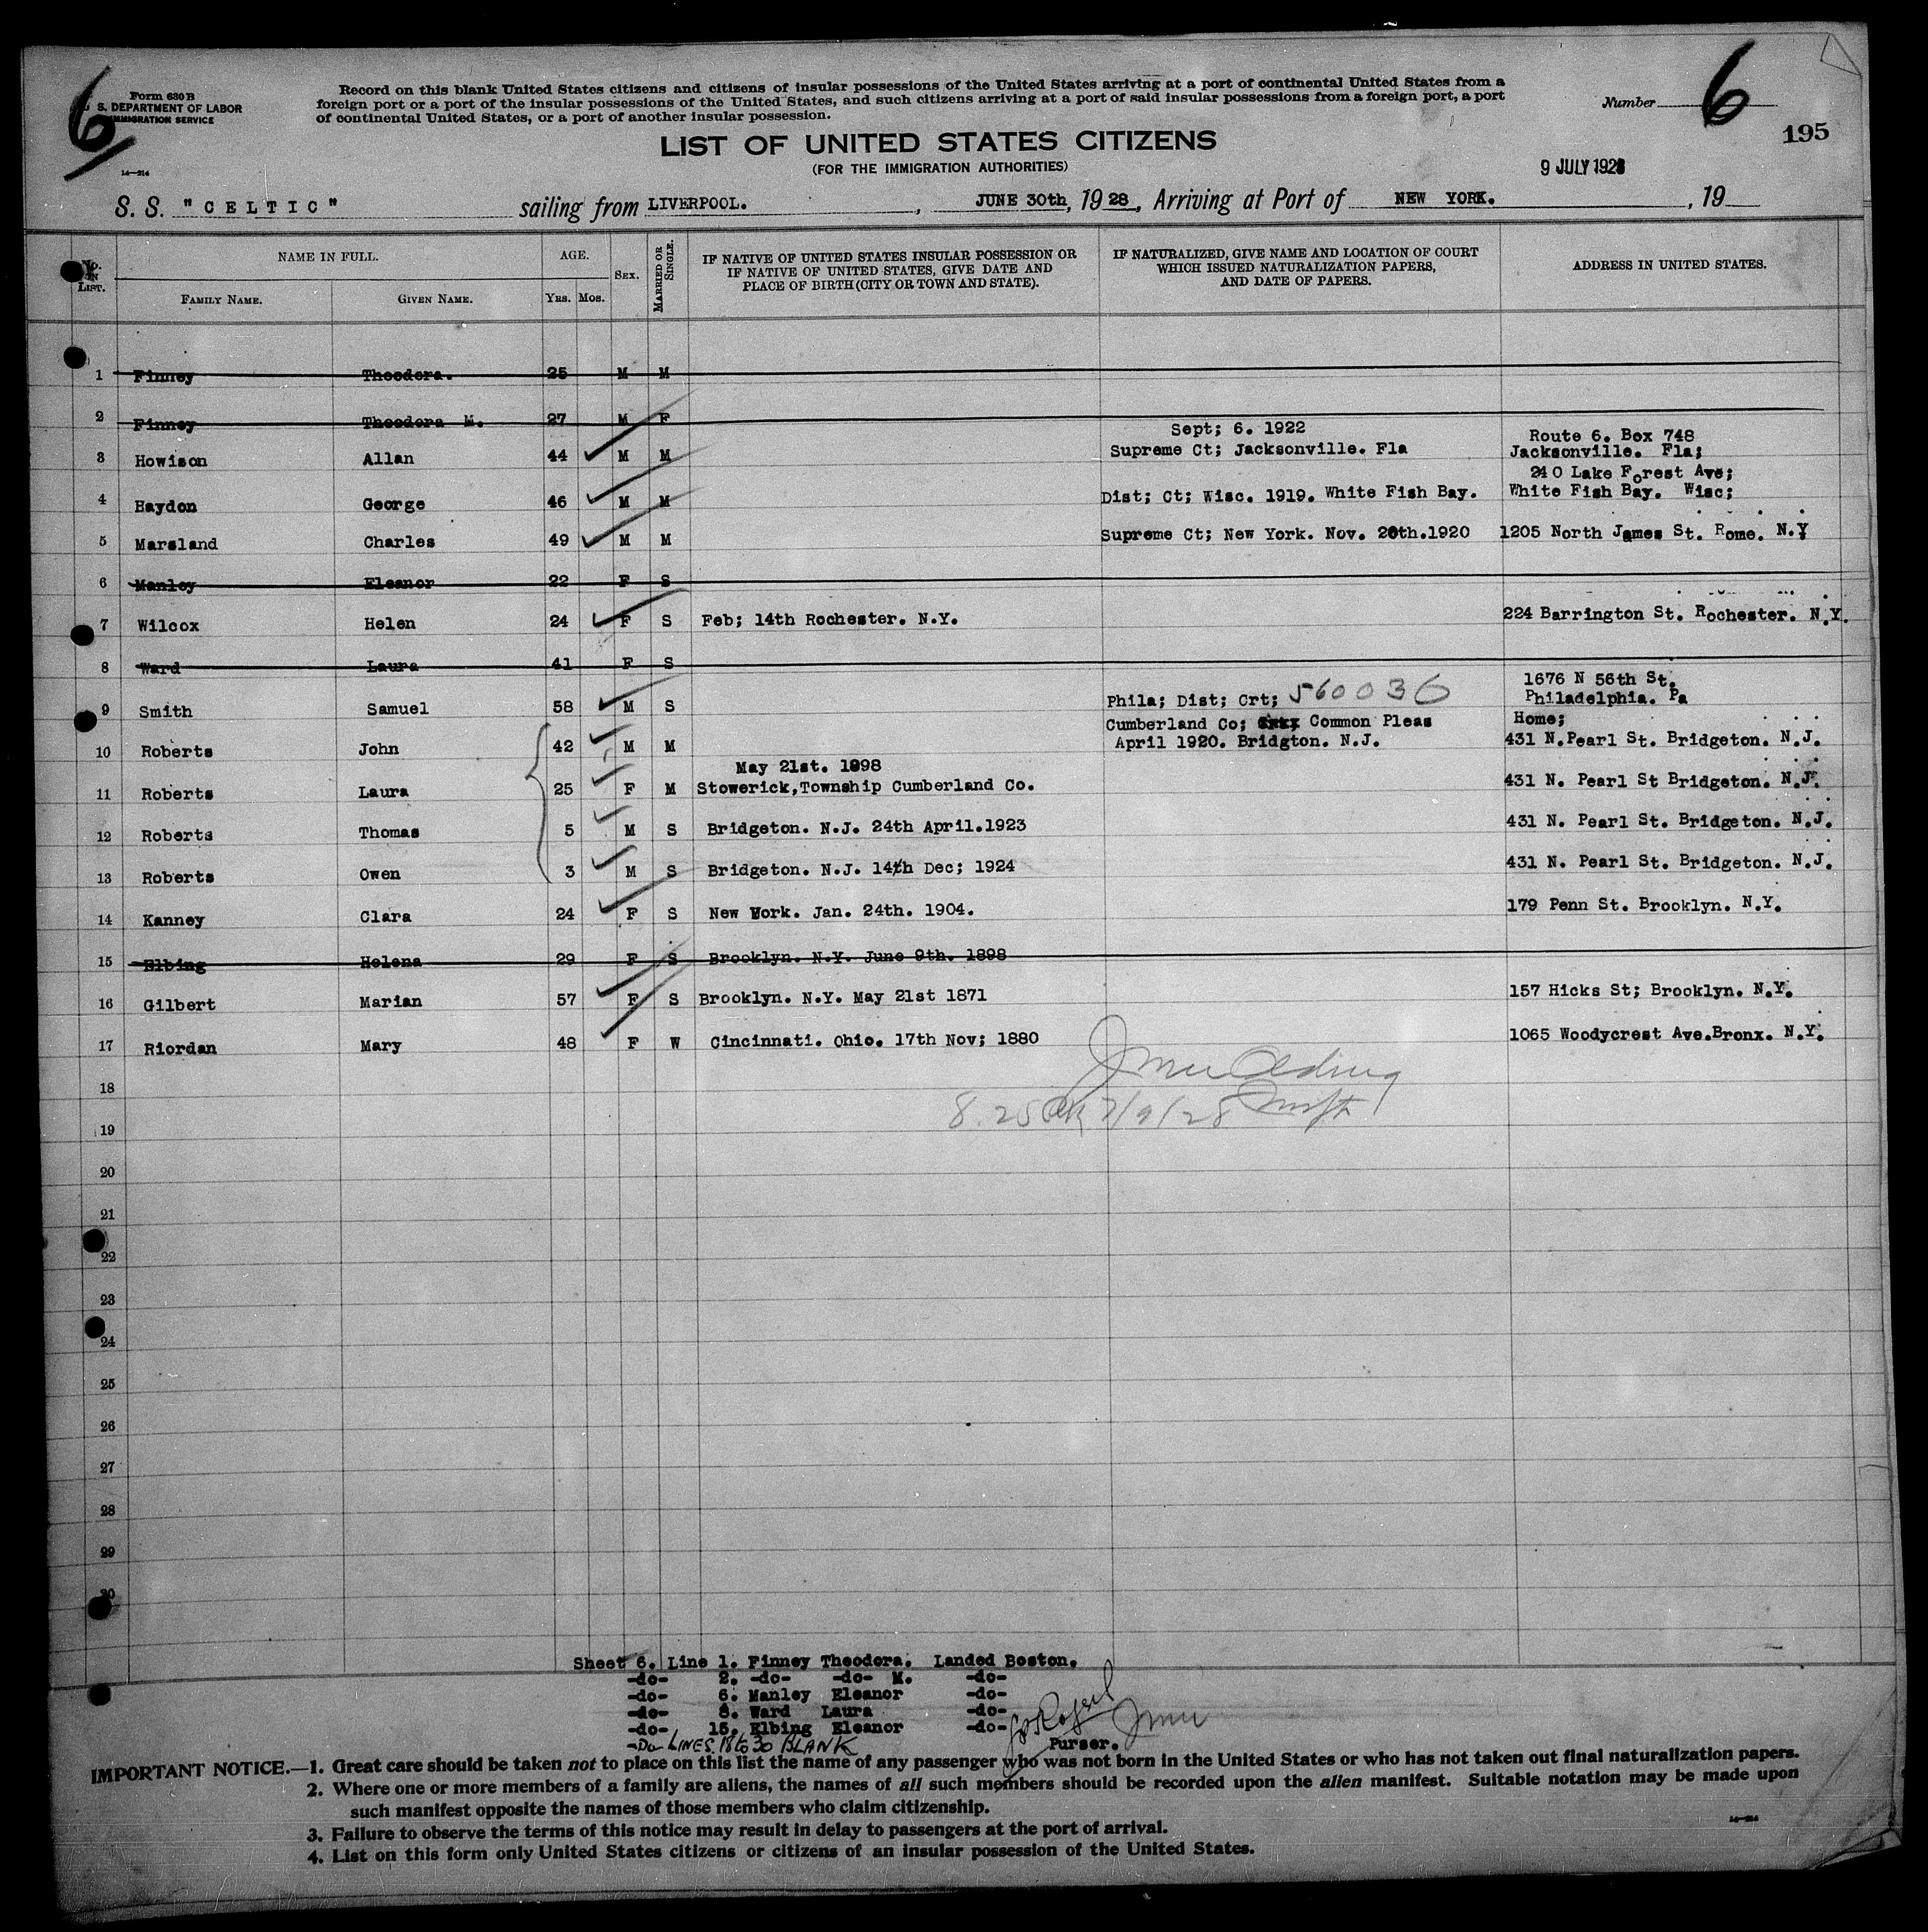 6
Form 630 B
U. S. DEPARTMENT OF LABOR
IMMIGRATION SERVICE
14—214
Record on this blank United States citizens and citizens of insular possessions of the United States arriving at a port of continental United States from a
foreign port or a port of the insular possessions of the United States, and such citizens arriving at a port of said insular possessions from a foreign port, a port
of continental United States, or a port of another insular possession.
Number 6
195
LIST OF UNITED STATES CITIZENS
(FOR THE IMMIGRATION AUTHORITIES)
9 JULY 1928
S. S. "CELTIC" sailing from LIVERPOOL. , JUNE 30th, 1928, Arriving at Port of NEW YORK. , 19
No. IN LIST. NAME IN FULL. AGE. SEX. MARRIED OR SINGLE. IF NATIVE OF UNITED STATES INSULAR POSSESSION OR IF NATIVE OF UNITED STATES, GIVE DATE AND PLACE OF BIRTH (CITY OR TOWN AND STATE). IF NATURALIZED, GIVE NAME AND LOCATION OF COURT WHICH ISSUED NATURALIZATION PAPERS, AND DATE OF PAPERS. ADDRESS IN UNITED STATES.
FAMILY NAME. GIVEN NAME. YRS. MOS.
1 Finney Theodora. 25 M M
2 Finney Theodora M. 27 M F
Sept; 6. 1922 Route 6. Box 748
3 Howison Allan 44 M M Supreme Ct; Jacksonville. Fla Jacksonville. Fla;
240 Lake Forest Ave;
4 Haydon George 46 M M Dist; Ct; Wisc. 1919. White Fish Bay. White Fish Bay. Wisc;
5 Marsland Charles 49 M M Supreme Ct; New York. Nov. 20th.1920 1205 North James St. Rome. N.Y
6 Manley Eleanor 22 F S
7 Wilcox Helen 24 F S Feb; 14th Rochester. N.Y. 224 Barrington St. Rochester. N.Y.
8 Ward Laura 41 F S
1676 N 56th St.
9 Smith Samuel 58 M S Phila; Dist; Crt; 560036 Philadelphia. Pa
Cumberland Co; Common Pleas Home;
10 Roberts John 42 M M April 1920. Bridgton. N.J. 431 N.Pearl St. Bridgeton. N.J.
May 21st. 1898
11 Roberts Laura 25 F M Stowerick,Township Cumberland Co. 431 N. Pearl St Bridgeton. N.J.
12 Roberts Thomas 5 M S Bridgeton. N.J. 24th April.1923 431 N. Pearl St. Bridgeton. N.J.
13 Roberts Owen 3 M S Bridgeton. N.J. 14th Dec; 1924 431 N. Pearl St. Bridgeton. N.J.
14 Kanney Clara 24 F S New York. Jan. 24th. 1904. 179 Penn St. Brooklyn. N.Y.
15 Elbing Helena 29 F S Brooklyn. N.Y. June 9th. 1898
16 Gilbert Marian 57 F S Brooklyn. N.Y. May 21st 1871 157 Hicks St; Brooklyn. N.Y.
17 Riordan Mary 48 F W Cincinnati. Ohio. 17th Nov; 1880 1065 Woodycrest Ave.Bronx. N.Y.
18
8.25 7/9/28
19
20
21
22
23
24
25
26
27
28
29
30
Sheet 6. Line 1. Finney Theodora. Landed Boston.
-do- 2. -do- -do- M. -do-
-do- 6. Manley Eleanor -do-
-do- 8. Ward Laura -do-
-do- 15. Elbing Eleanor -do-
-Do- LINES 18 to 30 BLANK
Purser.
IMPORTANT NOTICE.—1. Great care should be taken not to place on this list the name of any passenger who was not born in the United States or who has not taken out final naturalization papers.
2. Where one or more members of a family are aliens, the names of all such members should be recorded upon the alien manifest. Suitable notation may be made upon
such manifest opposite the names of those members who claim citizenship.
3. Failure to observe the terms of this notice may result in delay to passengers at the port of arrival.
4. List on this form only United States citizens or citizens of an insular possession of the United States.
14—214